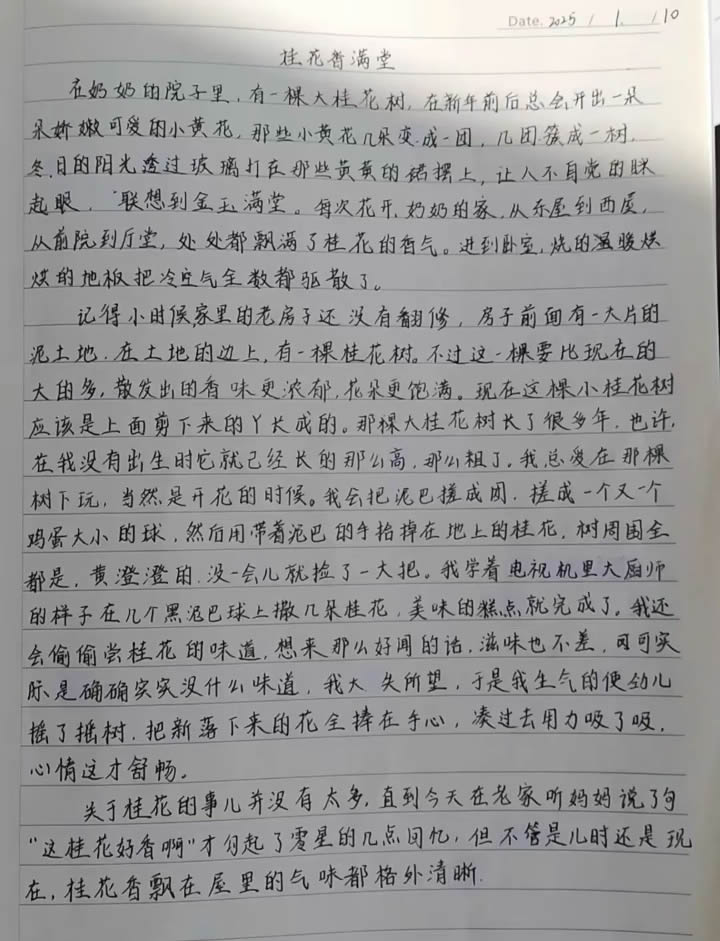 Date. 2025 / 1. / 10
桂花香满堂
在奶奶的院子里，有一棵大桂花树，在新年前后总会开出一朵
朵娇嫩可爱的小黄花，那些小黄花几朵变成一团，几团簇成一树，
冬日的阳光透过玻璃打在那些黄黄的裙摆上，让人不自觉的眯
起眼，联想到金玉满堂。每次花开，奶奶的家，从东屋到西屋，
从前院到厅堂，处处都飘满了桂花的香气。进到卧室，烧的温暖烘
烘的地板把冷空气全数都驱散了。
记得小时候家里的老房子还没有翻修，房子前面有一大片的
泥土地，在土地的边上，有一棵桂花树。不过这一棵要比现在的
大的多，散发出的香味更浓郁，花朵更饱满。现在这棵小桂花树
应该是上面剪下来的丫长成的。那棵大桂花树长了很多年，也许，
在我没有出生时它就已经长的那么高，那么粗了。我总爱在那棵
树下玩，当然是开花的时候。我会把泥巴搓成团，搓成一个又一个
鸡蛋大小的球，然后用带着泥巴的手抬掉在地上的桂花，树周围全
都是，黄澄澄的，没一会儿就捡了一大把。我学着电视机里大厨师
的样子在几个黑泥巴球上撒几朵桂花，美味的糕点就完成了。我还
会偷偷尝桂花的味道，想来那么好闻的话，滋味也不差，可实
际是确确实实没什么味道，我大失所望，于是我生气的使劲儿
摇了摇树，把新落下来的花全捧在手心，凑过去用力吸了吸，
心情这才舒畅。
关于桂花的事儿并没有太多，直到今天在老家听妈妈说了句
“这桂花好香啊”才勾起了零星的几点回忆，但不管是儿时还是现
在，桂花香飘在屋里的气味都格外清晰.